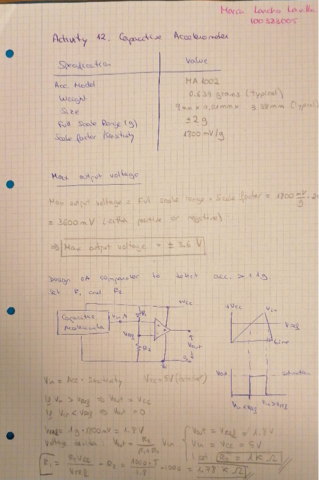 Activity 12. Capacitive Accelerometer
Specification Value
Acc Model MA1002
Weight 0.634 grams (typical)
Size
Full Scale Range (g) ±2g
Scale factor / Sensitivity 1800 mV/g
Max output voltage
Max output voltage = Full scale range × Scale factor = 1800 mV/g
= 3600 mV (either positive or negative)
⇒ Max output voltage = ± 3.6 V
Design OA comparator to detect acc. > 1 g
Set R1 and R2
+Vcc
Capacitive
Accelerometer
Vin
Vref
R2
Vout
+Vcc
Vin
Vref
time
Vout
saturation
Vin < Vref
Vin > Vref
Vin = Acc · Sensitivity Vcc = 5V
If Vin > Vref ⇒ Vout = Vcc
If Vin < Vref ⇒ Vout = 0
Vref = 1g · 1800 mV = 1.8 V
Voltage divider: Vout = R2 / R1 + R2 · Vin
Vout = Vref = 1.8 V
Vin = Vcc = 5V
R2 = 1 K Ω
R1 = R2 Vcc / Vref - R2